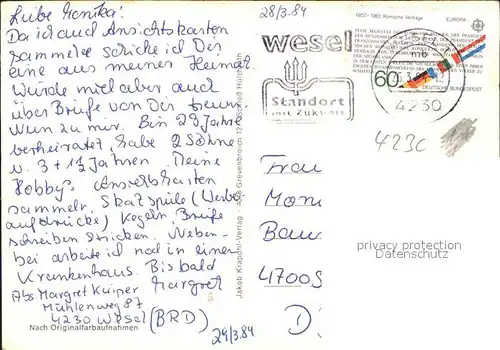 Liebe Monika!
Da ich auch Ansichtskarten
sammele schicke ich Dir
eine aus meiner Heimat.
Würde mich aber auch
über Briefe von Dir freuen.
Nun zu mir. Bin 29 Jahre
verheiratet, habe 2 Söhne
v. 3 + 1½ Jahren. Deine
Hobby's Ansichtskarten
sammeln, Skatspiele (Werbe
aufdrücke) Kegeln, Briefe
schreiben Stricken. Neben-
bei arbeite ich noch in einen
Krankenhaus. Bis bald
Margret
Abs Margret Kuiper
Mühlenweg 87
4230 Wesel (BRD)
Nach Originalfarbaufnahmen
29/3.84
Jakob Krapohl-Verlag 
Grevenbroich 12
28/3.84
wesel
Standort
mit Zukunft
1957-1982 Römische Verträge
EUROPA
60
DEUTSCHE BUNDESPOST
mb
4230
423C
Frau
Mon
Bau
4700S
D
privacy protection
Datenschutz